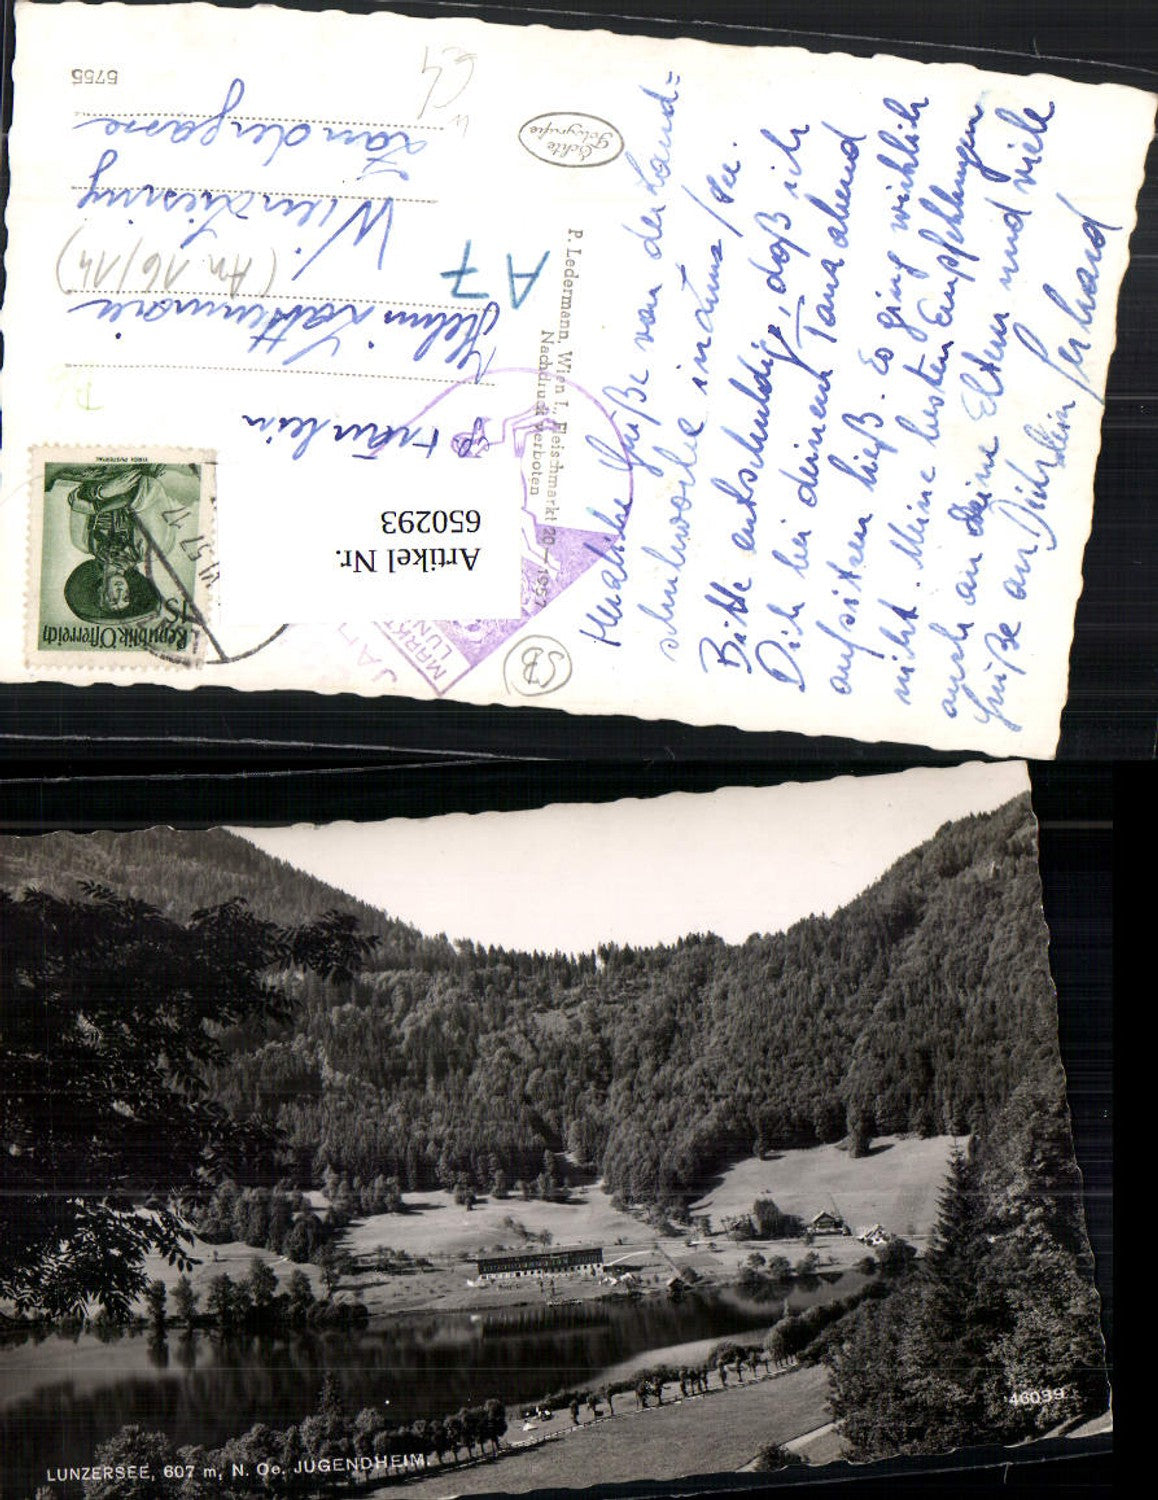 Herzliche Grüße von der Land=
schulwoche in Lunz/See.
Bitte entschuldige, daß ich
Dich bei deinem Tanzabend
aufsitzen ließ. Es ging wirklich
nicht. Meine besten Empfehlungen
auch an deine Eltern und viele
Grüße an Dich
dein Gerhard
Echte
Fotografie
P. Ledermann, Wien I., Fleischmarkt 20 — 1957
Nachdruck verboten
A7
Fräulein
(An 16/14)
Wien
5755
Artikel Nr.
650293
Republik Österreich
1S
VI. 57
17
MARKT
LUN
SB
LUNZERSEE, 607 m, N. Oe. JUGENDHEIM.
46039